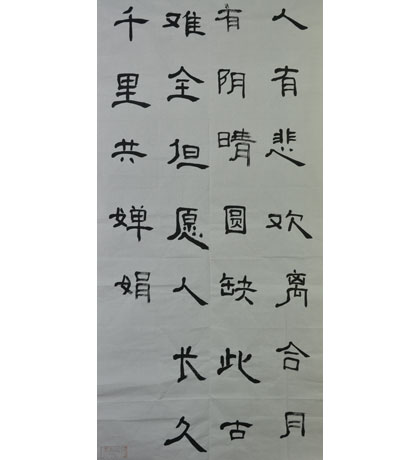 人有悲欢离合月
有阴晴圆缺此古
难全但愿人长久
千里共婵娟